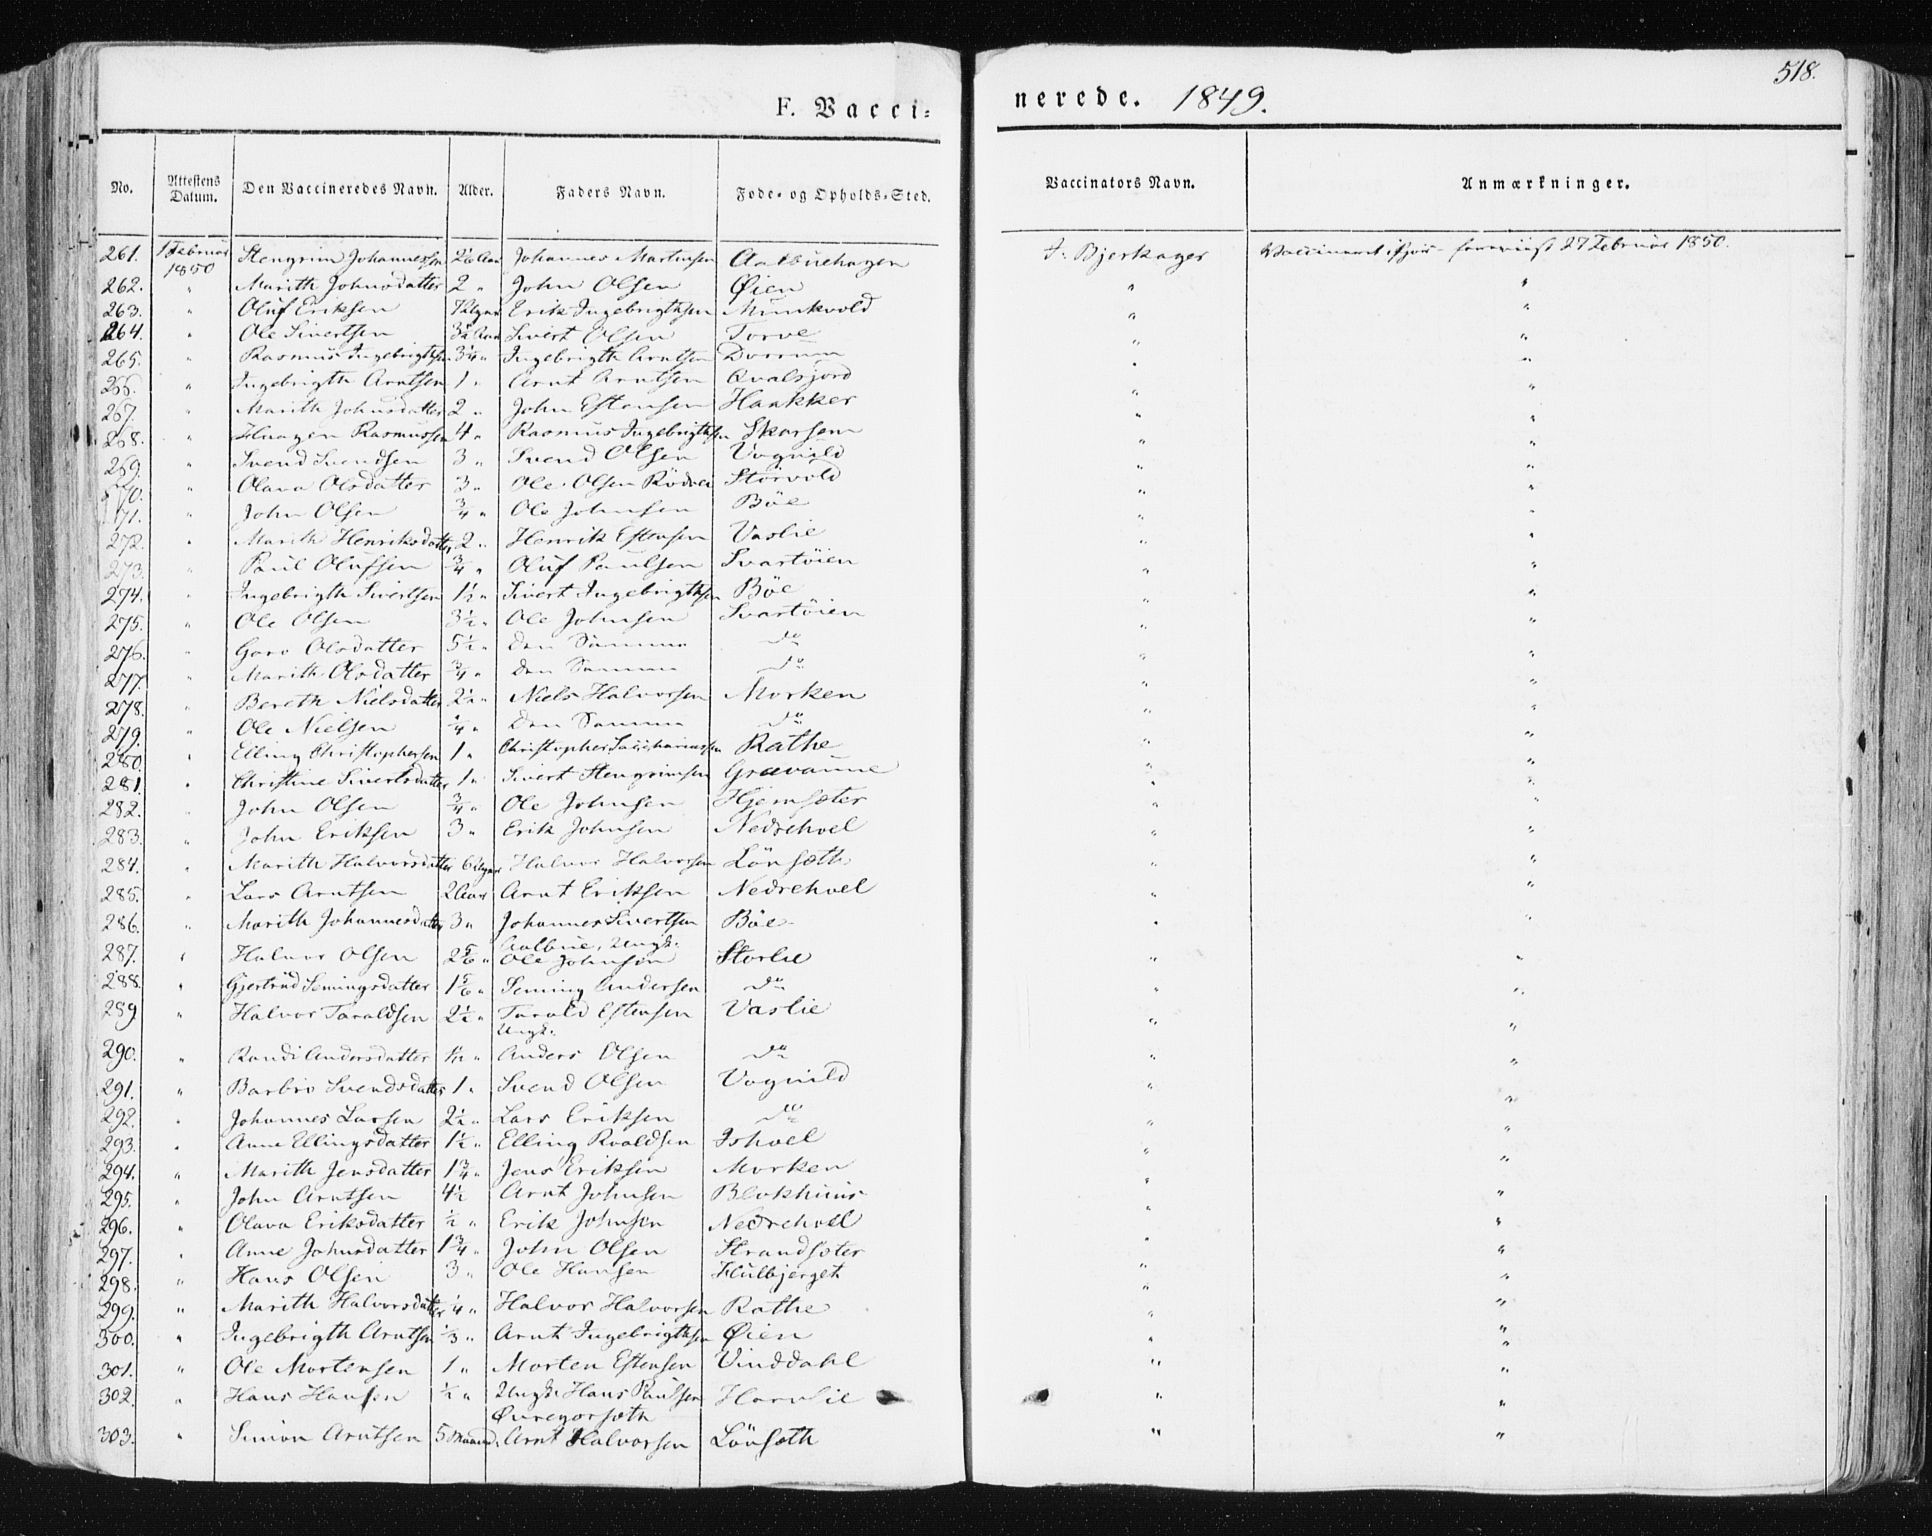 518.
F. Vacci= nerede. 1849.
No. Attestens Datum. Den Vaccineredes Navn. Alder. Faders Navn. Føde- og Opholds-Sted. Vaccinators Navn. Anmærkninger.
261. 1 Februar 1850 Stengrim Johannessen Johannes Martinsen J. Bjerkager 27 Februar 1850.
262. " Marith Johnsdatter 2 " John Olsen Øien " "
263. " Oluf Eriksen Erik Ingebrigthsen Munkvold " "
264. " Ole Sivertsen 3½ Aar Sivert Olsen Torve " "
265. " Rasmus Ingebrigthsen 3¼ " Ingebrigth Arntsen Dorrum " "
266. " Ingebrigth Arntsen 1 " Arnt Arntsen Qvalsjord " "
267. " Marith Johnsdatter 2 " John Estensen Haakker " "
268. " Haagen Rasmussen 4 " Rasmus Ingebrigthsen Skarsem " "
269. " Svend Svendsen 3 " Svend Olsen Vognild " "
270. " Olava Olsdatter 3 " Ole Olsen Rödvei Störvold " "
271. " John Olsen ¾ " Ole Johnsen Böe " "
272. " Marith Henriksdatter 2 " Henrik Estensen Vaslie " "
273. " Paul Olufsen ¾ " Oluf Paulsen Svartöien " "
274. " Ingebrigth Sivertsen 1½ " Sivert Ingebrigthsen Böe " "
275. " Ole Olsen 3½ " Ole Johnsen Svartöien " "
276. " Goro Olsdatter 5½ " Den Samme do " "
277. " Marith Olsdatter ¾ " Den Samme do " "
278. " Bereth Nielsdatter 2½ " Niels Halvorsen Morken " "
279. " Ole Nielsen ¼ " Den Samme do " "
280. " Elling Christophersen 1 " Christopher Sachariassen Rathe " "
281. " Christine Sivertsdatter 1 " Sivert Stengrimsen Grævaune " "
282. " John Olsen ¾ " Ole Johnsen Hjemsæter " "
283. " John Eriksen 3 " Erik Johnsen Nedrehoel " "
284. " Marith Halvorsdatter 6 Uger Halvor Halvorsen Lönsæth " "
285. " Lars Arntsen 2 Aar Arnt Eriksen Nedrehoel " "
286. " Marith Johannesdatter 3 " Johannes Sivertsen Böe " "
287. " Halvor Olsen 2 5/6 " Aalbue, Ungk. Ole Johnsen Storlie " "
288. " Gjertrud Semingsdatter 1 5/6 " Seming Andersen do " "
289 " Halvor Taraldsen 2½ " Tarald Estensen Vaslie " "
290. " Randi Andersdatter " Ungk. Anders Olsen do " "
291. " Barbro Svendsdatter 1 " Svend Olsen Vognild " "
292. " Johannes Larsen 2½ " Lars Eriksen do " "
293. " Anne Ellingsdatter 1½ " Elling Roaldsen Ishoel " "
294. " Marith Jensdatter 1¾ " Jens Eriksen Morken " "
295. " John Arntsen 4½ Arnt Johnsen Blokhuus " "
296. " Olava Eriksdatter ½ " Erik Johnsen Nedrehoel " "
297. " Anne Johnsdatter 1¾ " John Olsen Strandsæter " "
298. " Hans Olsen 3 " Ole Hansen Hulbjerget " "
299. " Marith Halvorsdatter ¼ " Halvor Halvorsen Rathe " "
300. " Ingebrigth Arntsen ⅓ " Arnt Ingebrigthsen Øien " "
301. " Ole Mortensen 1 " Morten Estensen Vinddahl " "
302. " Hans Hansen ½ " Ungk. Hans Paulsen " "
303. " Simon Arntsen 5 Maaned. Arnt Halvorsen Lönsæth " "